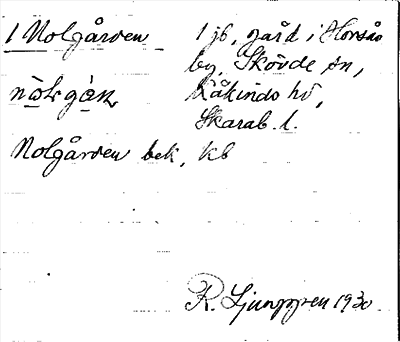 1 Nolgården 1 jb, gård i Horsås
by, Skövde sn,
Kåkinds hd,
Skarab. l.
Nolgården bek, kb
R. Ljunggren 1930.